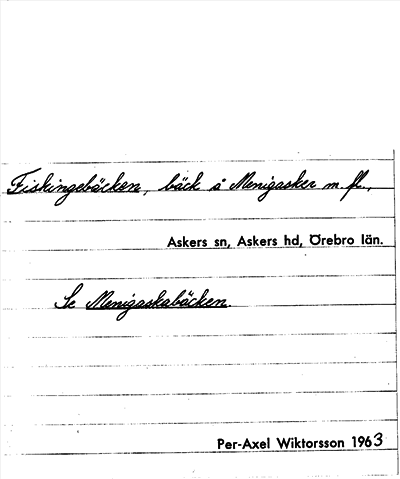 Fiskingebäcken, bäck å Menigasker m fl.,
Askers sn, Askers hd, Örebro län.
Se Menigaskabäcken.
Per-Axel Wiktorsson 1963